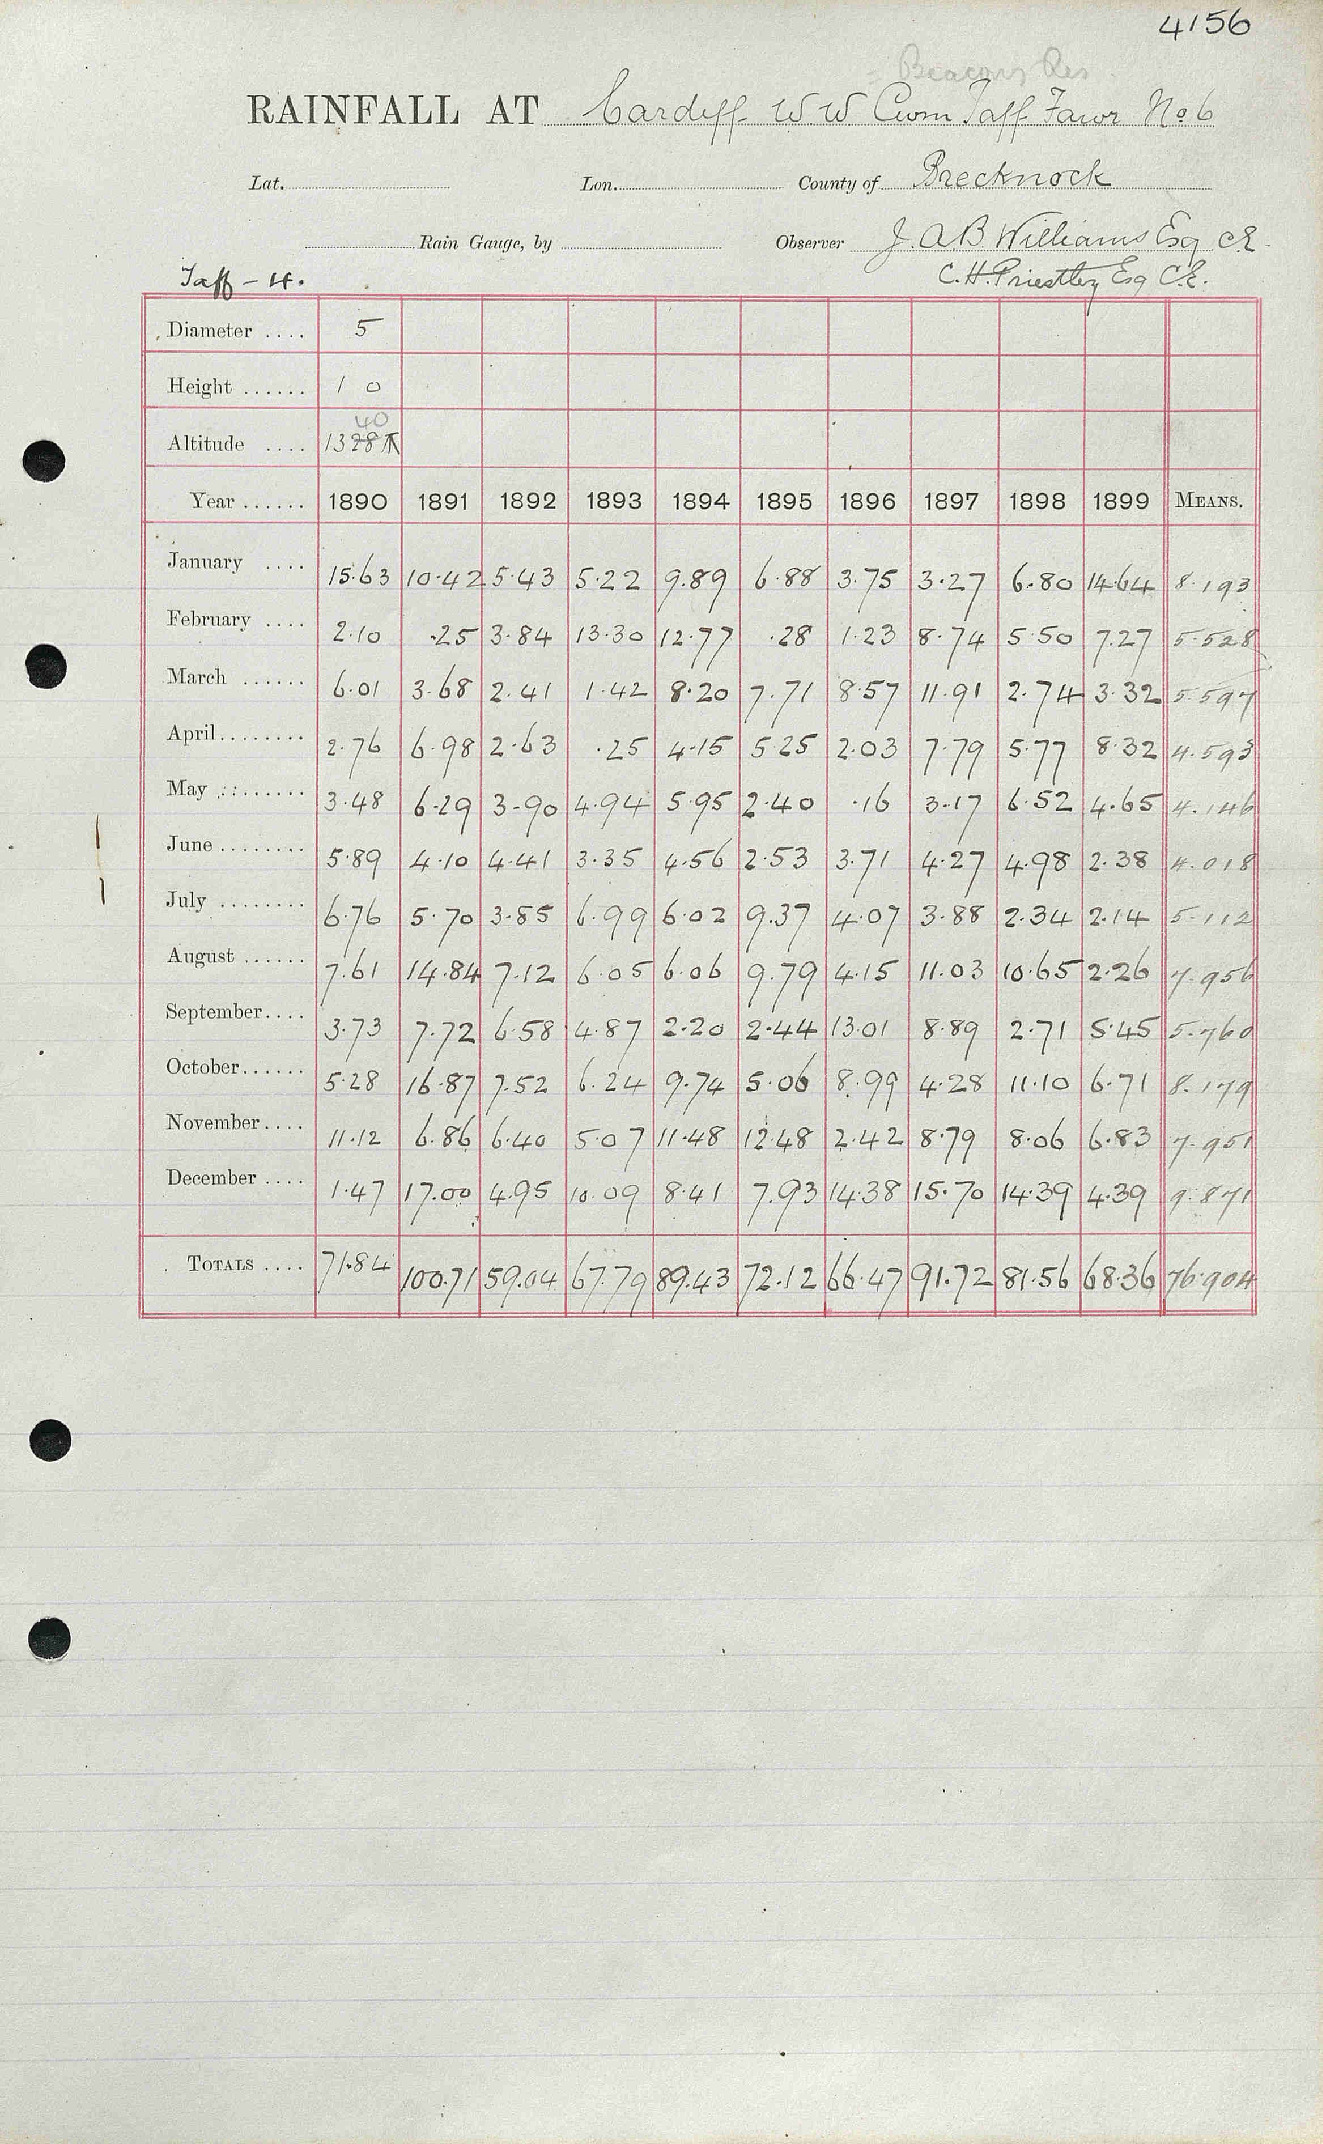 4156
= Beacons Res.
RAINFALL AT Cardiff W W Cwm Taff Fawr No 6
Lat. Lon. County of Brecknock
Rain Gauge, by Observer J. A B Williams Esq C E
Taff - 4. C. H. Priestley Esq C.E.
Diameter .... 5
Height ...... 1 0
40
Altitude .... 1328 T
Year ...... 1890 1891 1892 1893 1894 1895 1896 1897 1898 1899 MEANS.
January .... 15.63 10.42 5.43 5.22 9.89 6.88 3.75 3.27 6.80 14.64 8.193
February .... 2.10 .25 3.84 13.30 12.77 .28 1.23 8.74 5.50 7.27 5.528
March ...... 6.01 3.68 2.41 1.42 8.20 7.71 8.57 11.91 2.74 3.32 5.597
April ........ 2.76 6.98 2.63 .25 4.15 5.25 2.03 7.79 5.77 8.32 4.593
May ........ 3.48 6.29 3.90 4.94 5.95 2.40 .16 3.17 6.52 4.65 4.146
June ........ 5.89 4.10 4.41 3.35 4.56 2.53 3.71 4.27 4.98 2.38 4.018
July ........ 6.76 5.70 3.85 6.99 6.02 9.37 4.07 3.88 2.34 2.14 5.112
August ...... 7.61 14.84 7.12 6.05 6.06 9.79 4.15 11.03 10.65 2.26 7.956
September .... 3.73 7.72 6.58 4.87 2.20 2.44 13.01 8.89 2.71 5.45 5.760
October ...... 5.28 16.87 7.52 6.24 9.74 5.06 8.99 4.28 11.10 6.71 8.179
November .... 11.12 6.86 6.40 5.07 11.48 12.48 2.42 8.79 8.06 6.83 7.951
December .... 1.47 17.00 4.95 10.09 8.41 7.93 14.38 15.70 14.39 4.39 9.871
TOTALS .... 71.84 100.71 59.04 67.79 89.43 72.12 66.47 91.72 81.56 68.36 76.904